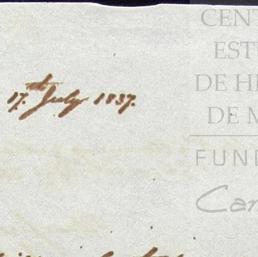 17th July 1837.
CENT
EST
DE HI
DE M
FUND
Car